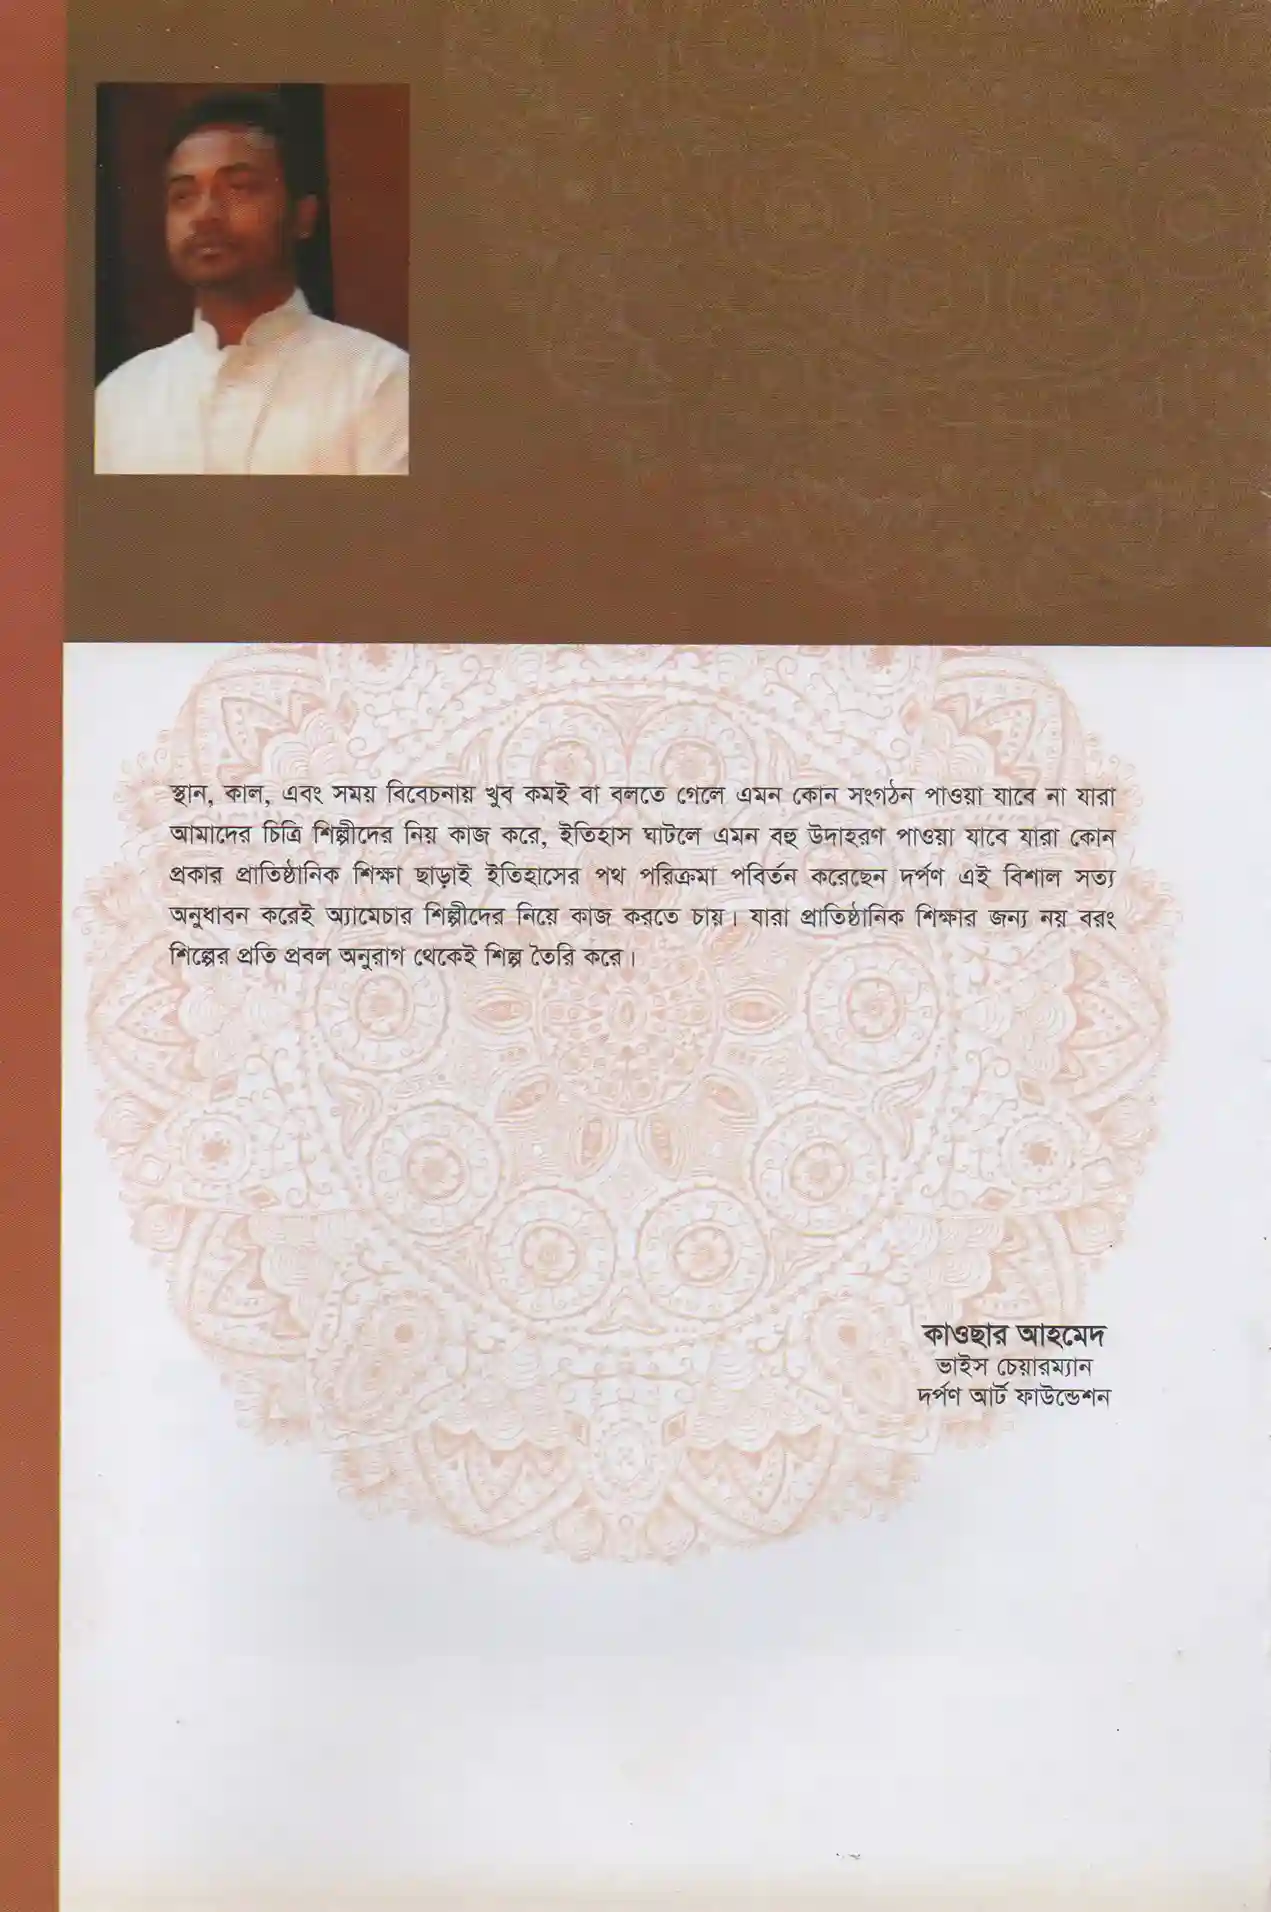 স্থান, কাল, এবং সময় বিবেচনায় খুব কমই বা বলতে গেলে এমন কোন সংগঠন পাওয়া যাবে না যারা
আমাদের চিত্রি শিল্পীদের নিয় কাজ করে, ইতিহাস ঘাটলে এমন বহু উদাহরণ পাওয়া যাবে যারা কোন
প্রকার প্রাতিষ্ঠানিক শিক্ষা ছাড়াই ইতিহাসের পথ পরিক্রমা পবির্তন করেছেন দর্পণ এই বিশাল সত্য
অনুধাবন করেই অ্যামেচার শিল্পীদের নিয়ে কাজ করতে চায়। যারা প্রাতিষ্ঠানিক শিক্ষার জন্য নয় বরং
শিল্পের প্রতি প্রবল অনুরাগ থেকেই শিল্প তৈরি করে।
কাওছার আহমেদ
ভাইস চেয়ারম্যান
দর্পণ আর্ট ফাউন্ডেশন